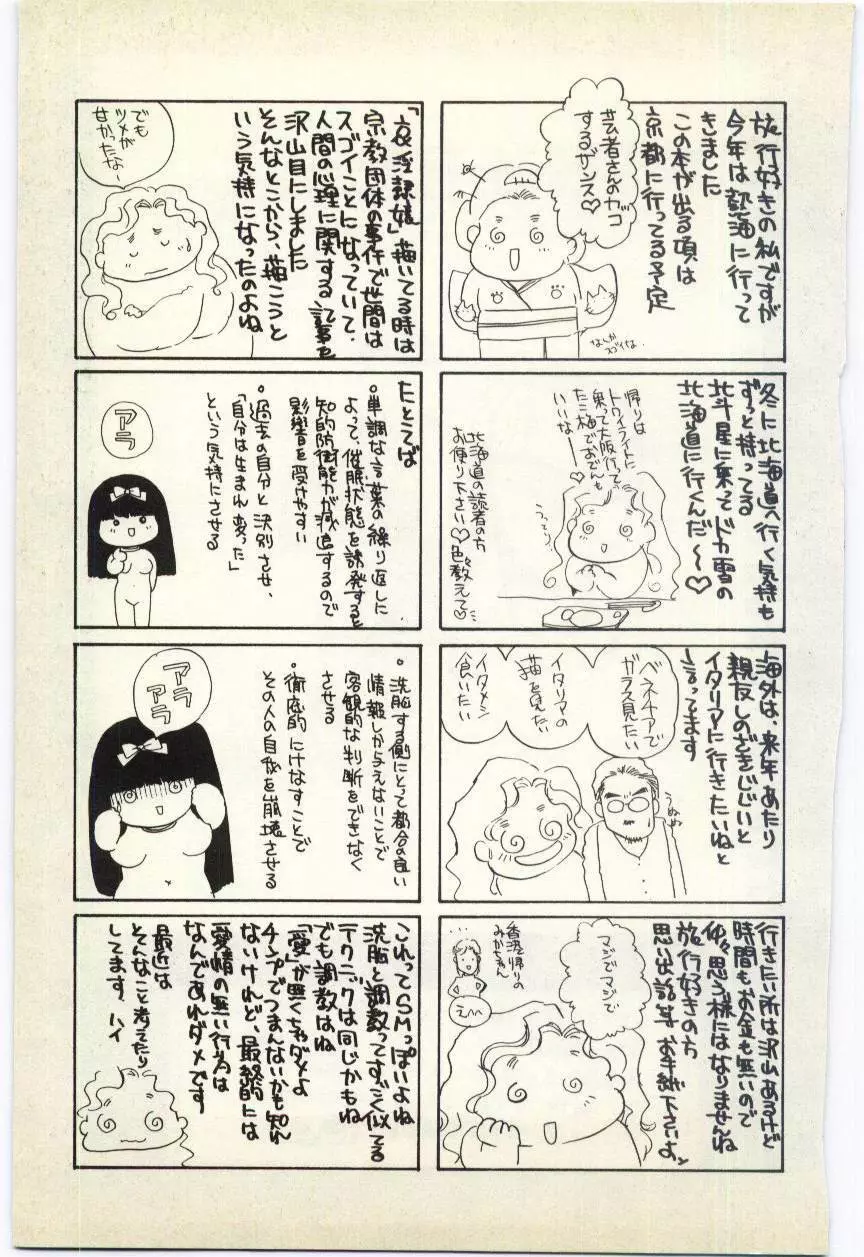 旅行好きの私ですが
今年は熱海に行って
きました
この本が出る頃は
京都に行ってる予定
芸者さんのカッコ
するザンス♡
なんか
スゴイな。
冬に北海道へ行く気持も
ずっと持ってる
北斗星に乗ってドカ雪の
北海道に行くんだ〜♡
帰りは
トワイライトに
乗って大阪行って
たこ梅でおでんも
いいな———♡
北海道の読者の方
お便り下さい♡色々教えて♡
海外は、来年あたり
親友しのざきじじいと
イタリアに行きたいねと
言ってます
ベネチアで
ガラス見たい
イタリアの
猫を見たい
イタメシ
食いたい
うぬぬ
行きたい所は沢山あるけど
時間もお金も無いので
仲々思う様にはなりませんね
旅行好きの方
思い出話等お手紙下さいよ
マジでマジで
香港帰りの
みかちゃん
えへへ
「哀淫隷嬢」描いてる時は
宗教団体の事件で世間は
スゴイことになっていて、
人間の心理に関する記事を
沢山目にしました
そんなとこから、描こうと
いう気持になったのよね
でも
ツメが
甘かったな〜
たとえば
・単調な言葉の繰り返しに
よって、催眠状態を誘発すると
知的防衛能力が減退するので
影響を受けやすい
・過去の自分と決別させ、
「自分は生まれ変った」
という気持にさせる
アラ
・洗脳する側にとって都合の良い
情報しか与えないことで
客観的な判断をできなく
させる
・徹底的にけなすことで
その人の自我を崩壊させる
アラ
アラ
これってSMっぽいよね
洗脳と調教ってすごく似てる
テクニックは同じかもね
でも調教はね
「愛」が無くちゃダメよ
チンプでつまんないかも知れ
ないけれど、最終的には
愛情の無い行為は
なんであれダメです
最近は
そんなこと考えたり
してます、ハイ